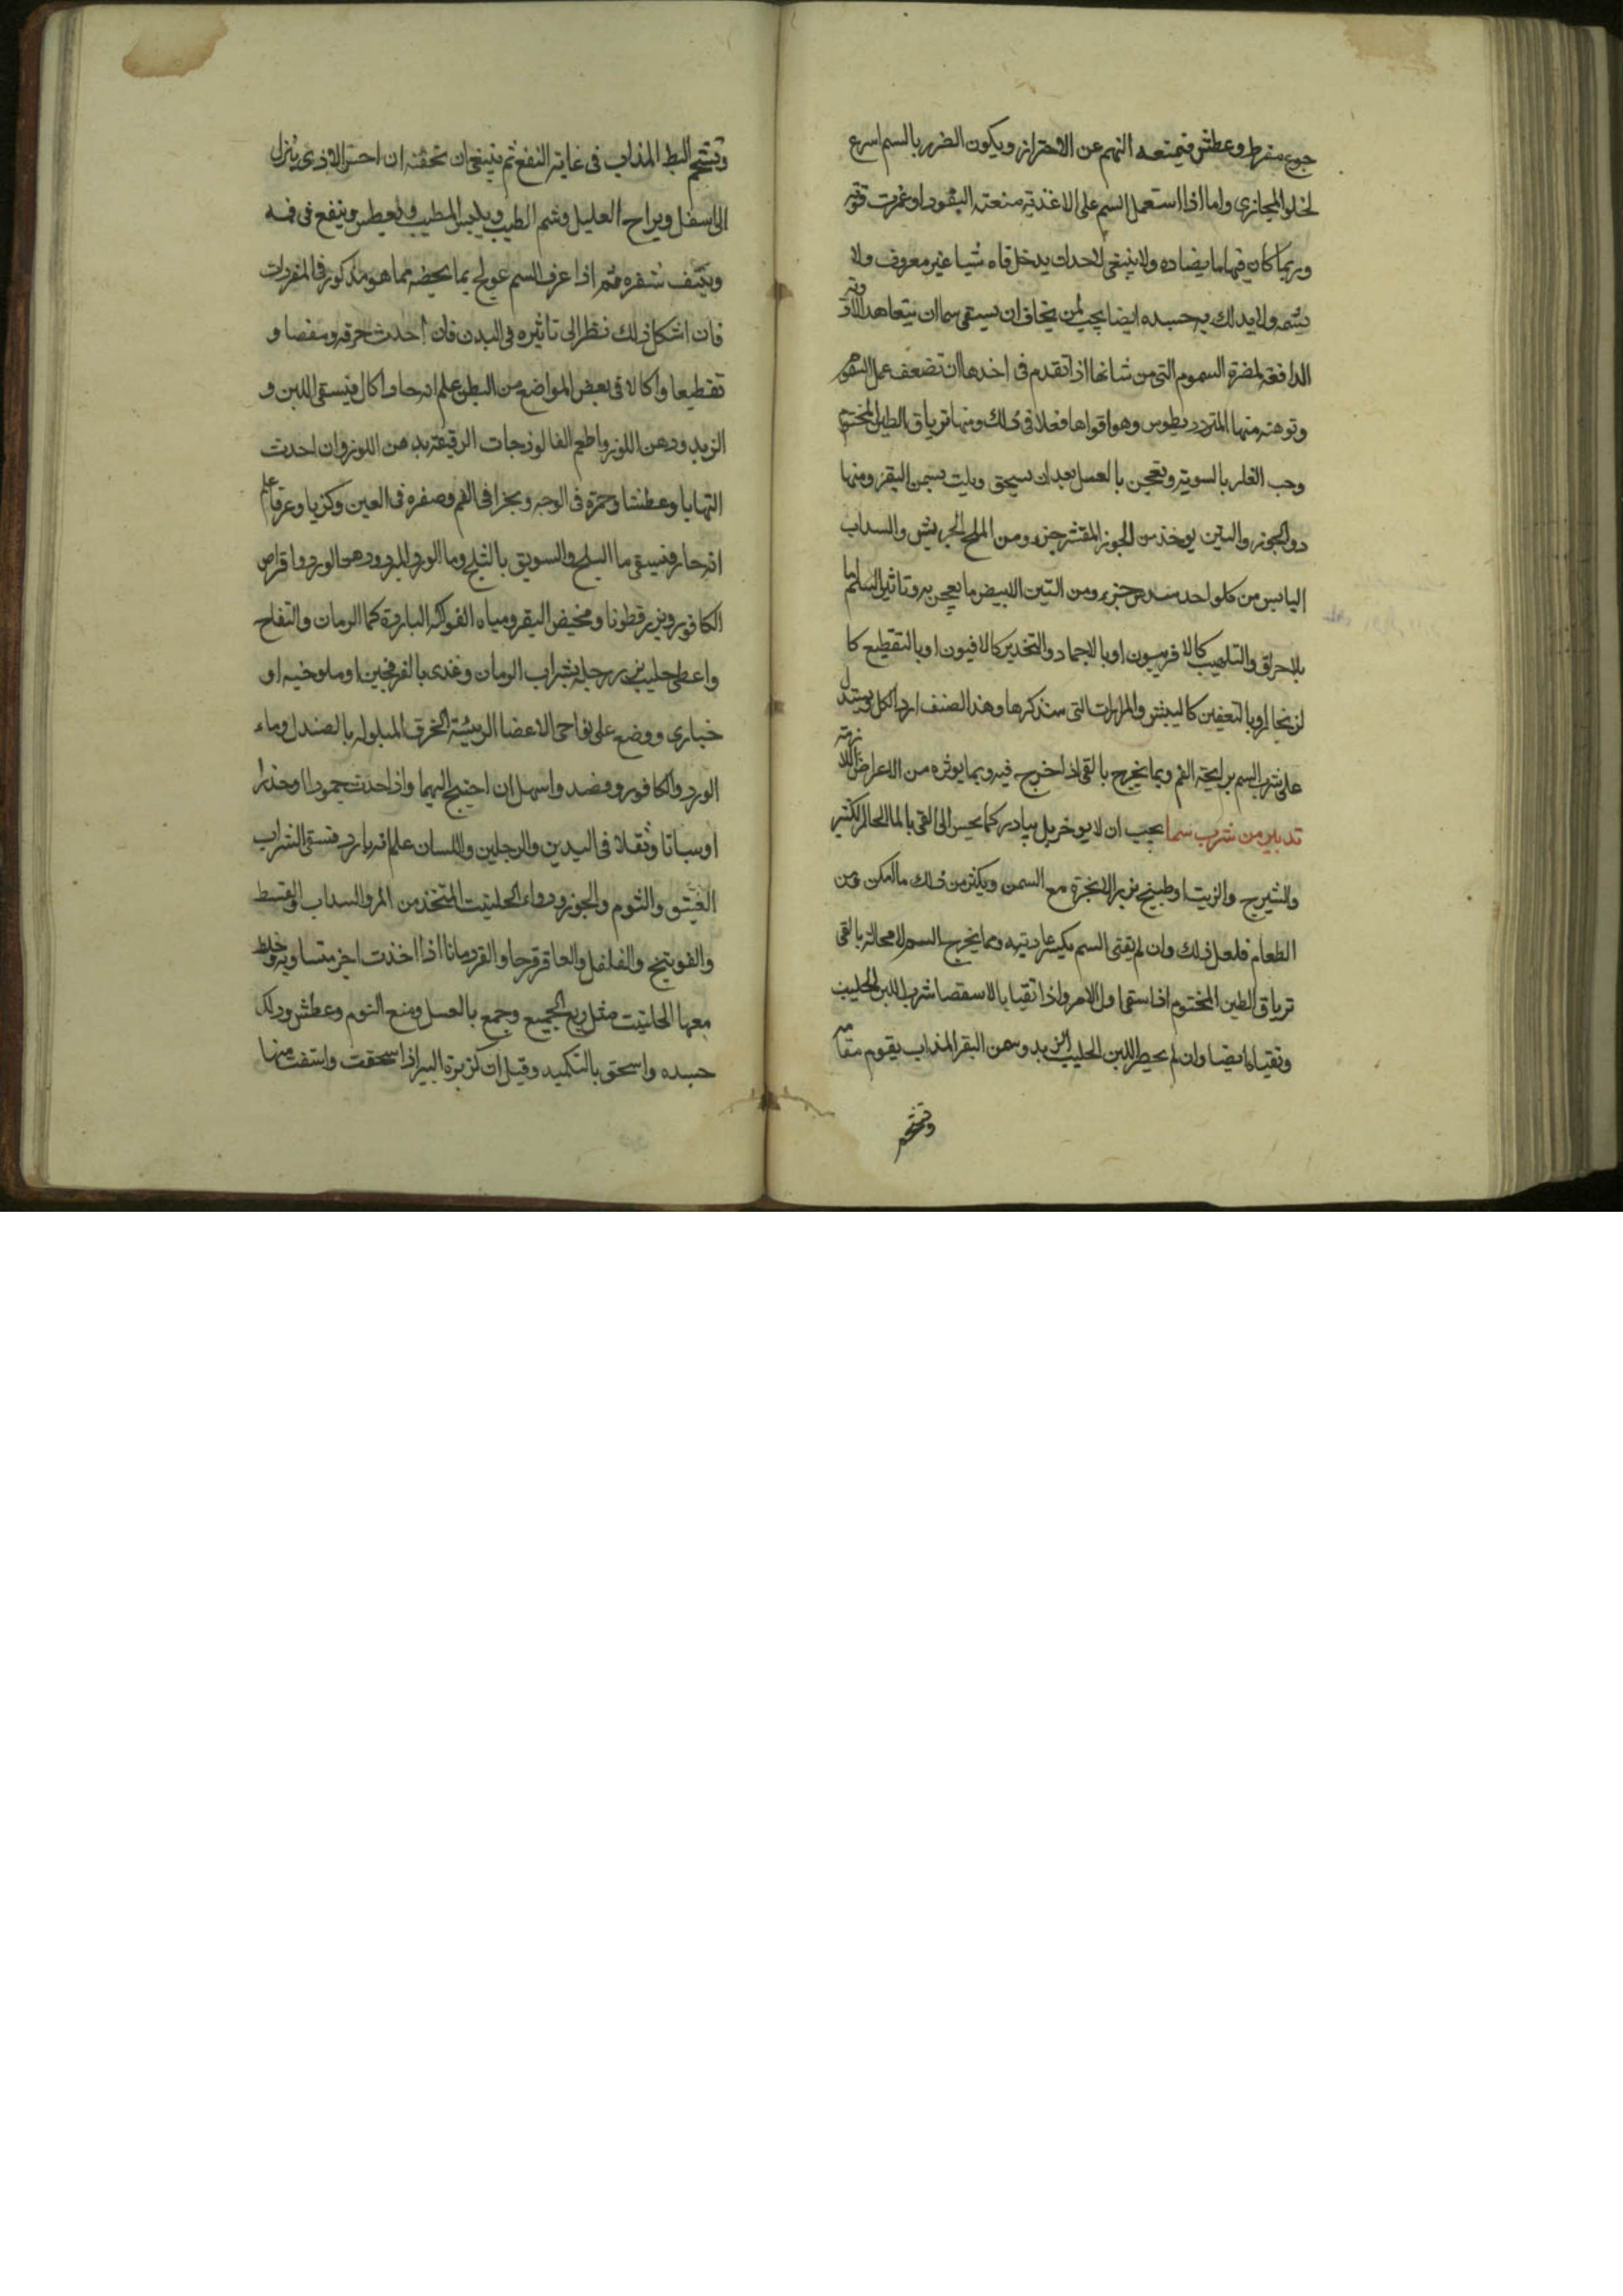 جوع مفرط وعطش فيمنعه النهم عن الاحتراز ويكون الضرر بالسم اسرع
لخلو المجازى واما اذا استعمل السم على الاغذية منعته النفود او غمرت قوته
وربما كان فيها ما يضاده ولا ينبغى لاحد ان يدخل فاه شيا غير معروف ولا
يشمه ولا يدلك به جسده ايضا يجب لمن يخاف ان يسقى سما ان يتعاهد الادوية
الدافعة لمضرة السموم التى من شانها اذا تقدم فى اخذها ان تضعف عمل السموم
وتوهنه منها المترديطوس وهو اقواها فعلا فى ذلك ومنها ترياق الطين المختوم
وحب الغار بالسوية ويعجن بالعسل بعد ان يسحق ويلت بسمن البقر ومنها
دوا الجوز والتين يوخذ من الجوز المقشر جزء ومن الملح الجريش والسداب
اليابس من كل واحد سدس جزء ومن التين الابيض ما يعجن به وتاثير السم اما
بالاحراق والتلهيب كالافربيون او بالاجماد والتخدير كالافيون او بالتقطيع كا
لزنجار او بالتعفين كالبيش والمرارات التى سنذكرها وهذا الصنف اردا الكل ويستدل
على شرب السم برايحة الفم وبما يخرج بالقى اذا خرج فيه وبما يوثره من الاعراض اللازمة
تدبير من شرب سما يجب ان لا يوخر بل يبادر كما يحس الى القى بالما الحار الكثير
والشيرج والزيت او طبيخ بزر الانجرة مع السمن ويكثر من ذلك ما امكن ومن
الطعام فلعل ذلك وان لم يقى السم يكسر عاديته ومما يخرج السم لا محالة بالقى
ترياق الطين المختوم اذا سقى اول الامر واذا تقيا بالاستقصا شرب اللبن الحليب
وتقيا ايضا وان لم يحضر اللبن الحليب الزبد وسمن البقر المذاب يقوم مقامه
وشحم
وشحم البط المذاب فى غاية النفع ثم ينبغى ان تحقنه ان احس الاذى نازل
الى اسفل ويراح العليل وشم الطيب ويلبس المطيب ويعطس وينفخ فى فمه
وينتف شعره ثم اذا عرف السم عولج بما يخصه مما هو مذكور فى المفردات
فان اشكل ذلك نظر الى تاثيره فى البدن فان احدث حرقة ومغصا و
تقطيعا واكالا فى بعض المواضع من البطن علم انه حار اكال فيسقى اللبن و
الزبد ودهن اللوز واطعم الفالوذجات الرقيقة بدهن اللوز وان احدث
التهابا وعطشا وحمرة فى الوجه وبخرا فى الفم وصفره فى العين وكربا وعرقا علم
انه حار فيسقى ما الثلج والسويق بالثلج وما الورد المبرد ودهن الورد واقراص
الكافور وبزر قطونا ومخيض البقر ومياه الفواكه الباردة كما الرمان والتفاح
واعطى حليب بزر رجله بشراب الرمان وغذى بالفرفحين او ملوخيه او
خبارى ووضع على نواحى الاعضا الرييسة الخرق المبلوله بالصندل وماء
الورد والكافور وفصد واسهل ان احتيج اليهما واذا احدث جمودا او خدرا
او سباتا وثقلا فى اليدين والرجلين واللسان علم انه بارد فسقى الشراب
العتيق والثوم والجوز ودواء الحلتيت المتخذ من المر والسداب والقسط
والفوتنج والفلفل والعاقرقرحا والقردمانا اذا اخذت اجز متساويه وخلط
معها الحلتيت مثل ربع الجميع وجمع بالعسل ومنع النوم وعطش ودلك
جسده واسحق بالتكميد وقيل ان كزبرة البير اذا سحقت واستف منها